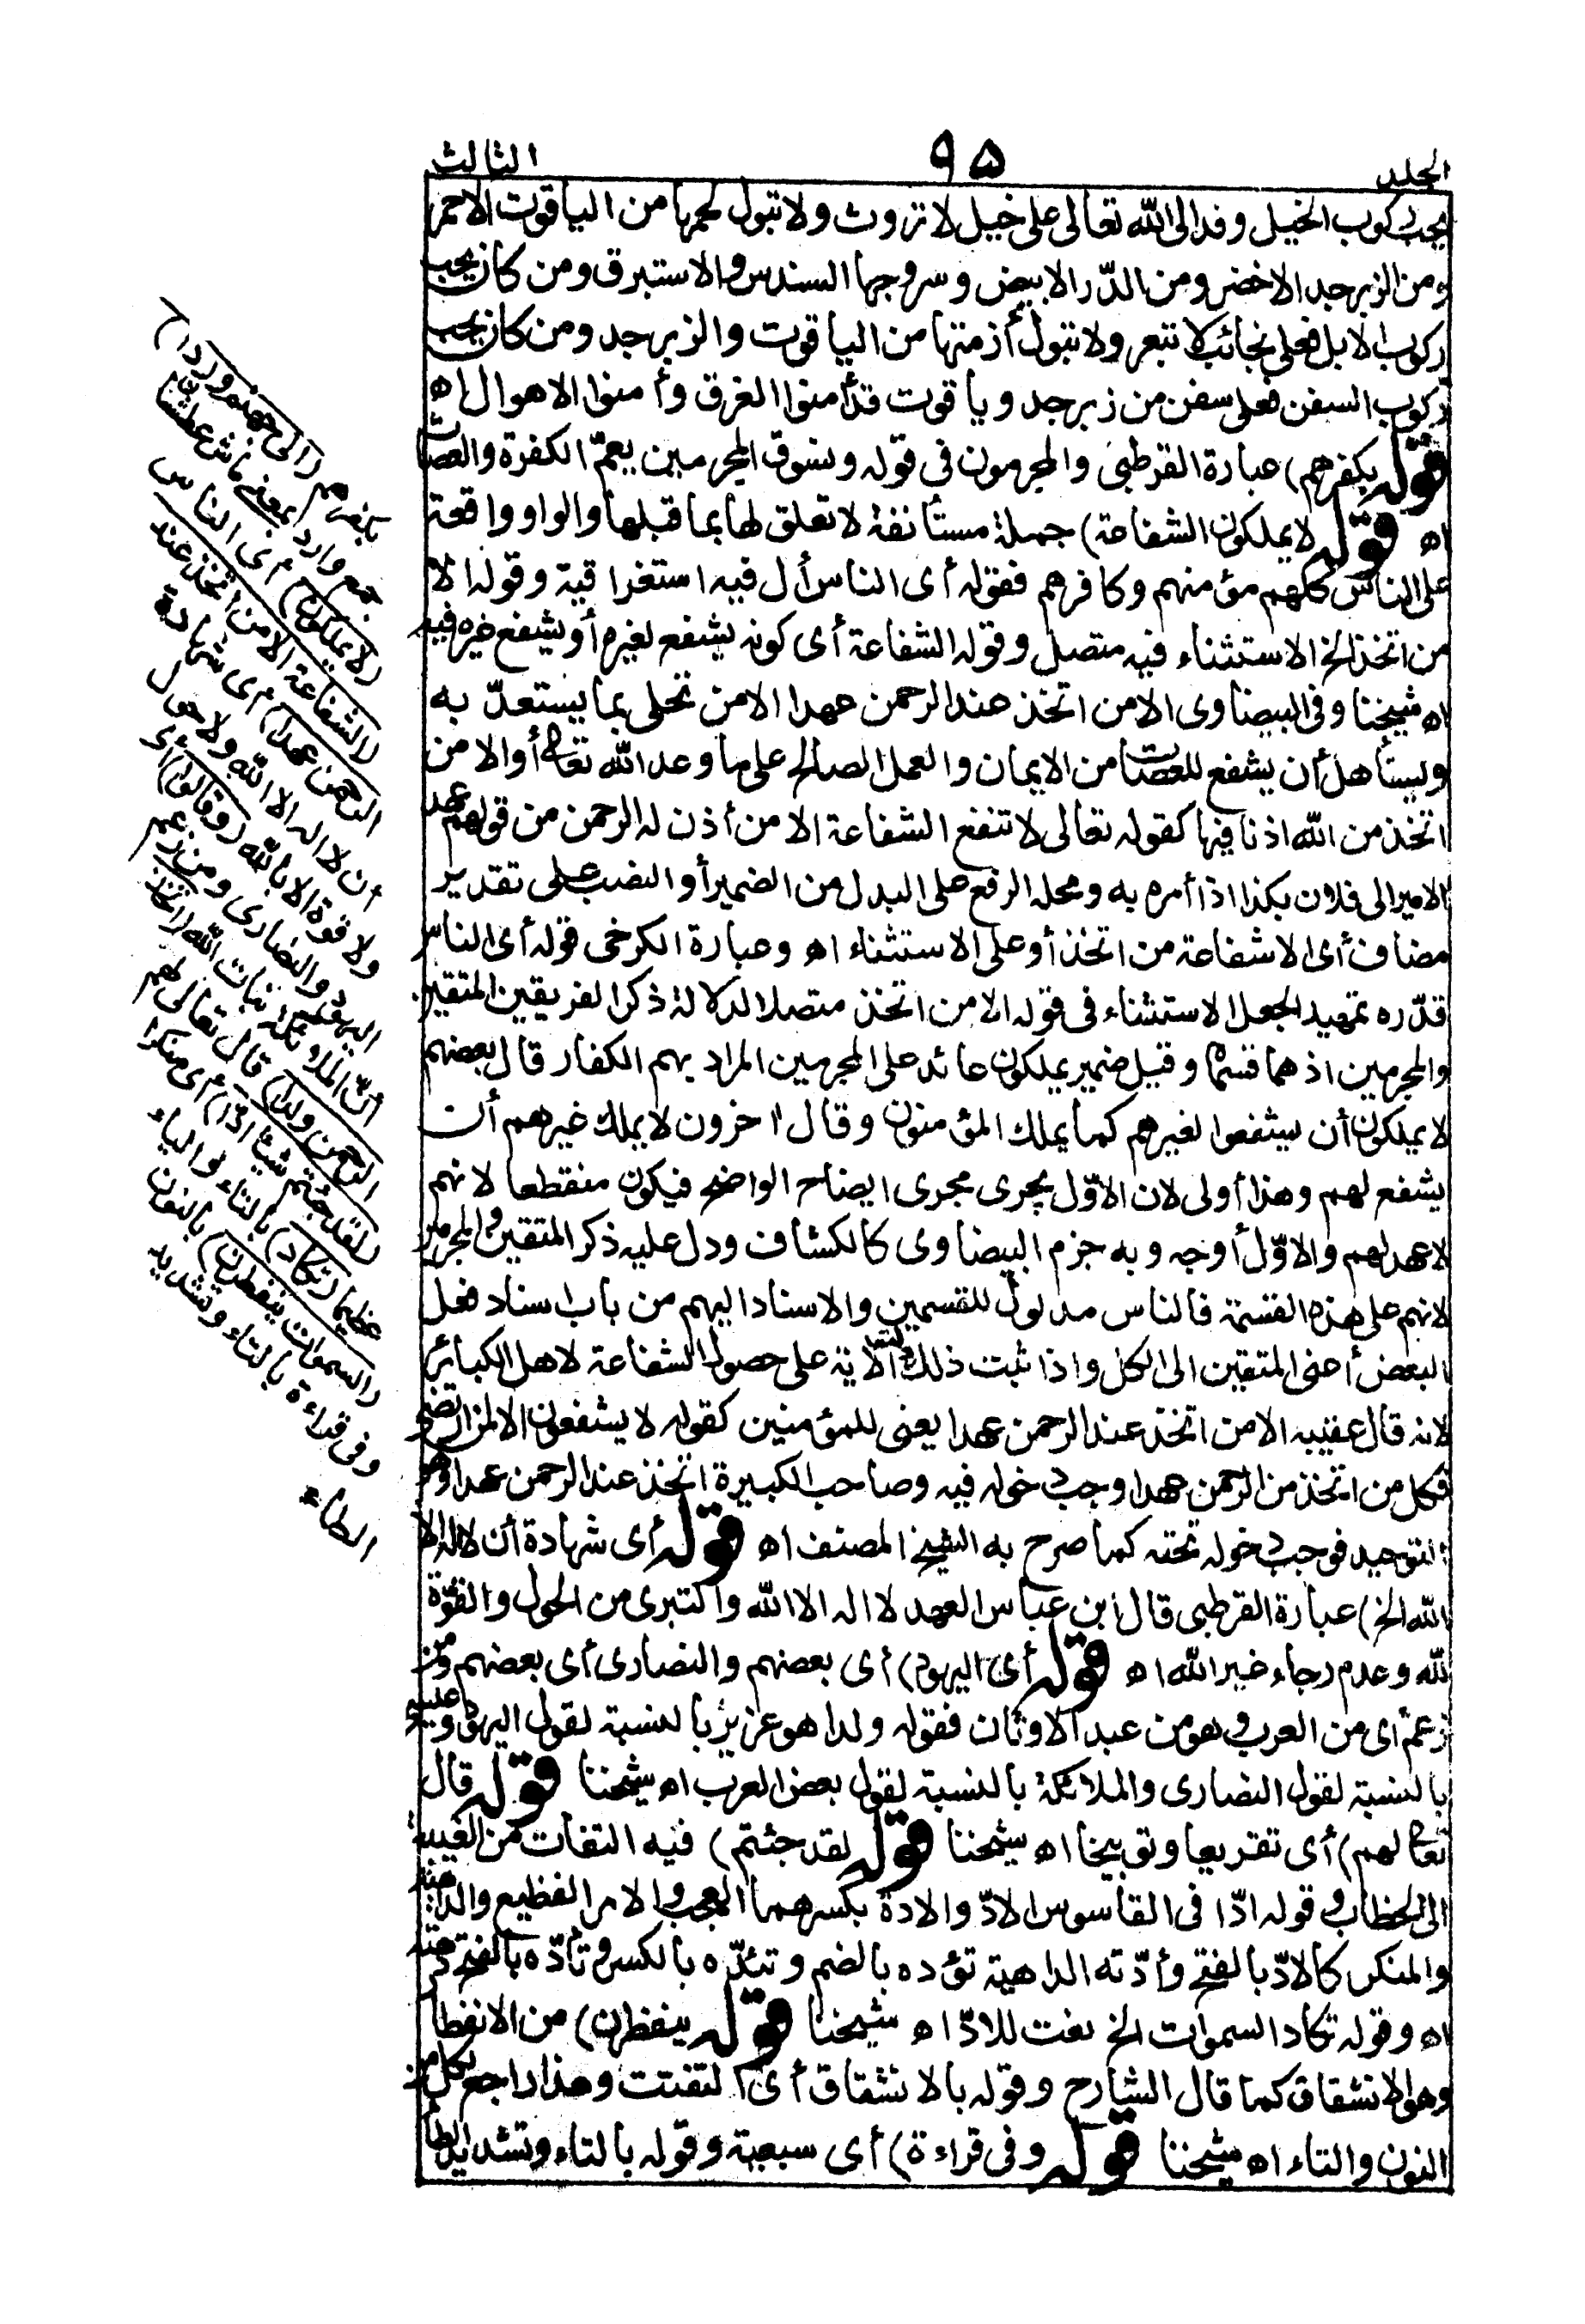 الجلد
٩٥
الثالث
يحب ركوب الخيل وفد الى الله تعالى على خيل لا تروث ولا تبول لجمها من الياقوت الاحمر
ومن الزبرجد الاخضر ومن الدّر الابيض وسروجها السندس والاستبرق ومن كان يحب
ركوب الابل فعلى نجائب لا تبعر ولا تبول أزمتها من الياقوت والزبرجد ومن كان يحب
ركوب السفن فعلى سفن من زبرجد وياقوت قد أمنوا الغرق وأمنوا الاهوال اه
قوله بكفرهم) عبارة القرطبى والمجرمون فى قوله ونسوق المجرمين يعمّ الكفرة والعصات
اه قوله لا يملكون الشفاعة) جملة مستأنفة لا تعلق لها بما قبلها والواو واقعة
على الناس كلهم مؤمنهم وكافرهم فقوله أى الناس أل فيه استغراقية وقوله الا
من اتخذ الخ الاستثناء فيه متصل وقوله الشفاعة أى كونه يشفع لغيره أو يشفع غيره فيه
اه شيخنا وفى البيضاوى الا من اتخذ عند الرحمن عهدا الا من تحلى بما يستعدّ به
ويستأهل أن يشفع للعصات من الايمان والعمل الصالح على ما وعد الله تعالى أو الا من
اتخذ من الله اذنا فيها كقوله تعالى لا تنفع الشفاعة الا من أذن له الرحمن من قولهم عهد
الامير الى فلان بكذا اذا أمره به ومحله الرفع على البدل من الضمير أو النصب على تقدير
مضاف أى الا شفاعة من اتخذ أو على الاستثناء اه وعبارة الكرخى قوله أى الناس
قدّره تمهيد الجعل الاستثناء فى قوله الا من اتخذ متصلا لدلالة ذكر الفريقين المتقين
والمجرمين اذ هما قسماه وقيل ضمير يملكون عائد على المجرمين المراد بهم الكفار قال بعضهم
لا يملكون أن يشفعوا لغيرهم كما يملك المؤمنون وقال اخرون لا يملك غيرهم أن
يشفع لهم وهذا أولى لان الاوّل يجرى مجرى ايضاح الواضح فيكون منقطعا لانهم
لا عهد لهم والاوّل أوجه وبه جزم البيضاوى كالكشاف ودل عليه ذكر المتقين والمجرمين
لانهم على هذه القسمة فالناس مدلول للقسمين والاسناد اليهم من باب اسناد فعل
البعض أعنى المتقين الى الكل واذا ثبت ذلك دلت الآية على حصول الشفاعة لاهل الكبائر
لانه قال عقيبه الا من اتخذ عند الرحمن عهدا يعنى للمؤمنين كقوله لا يشفعون الا لمن ارتضى
فكل من اتخذ من الرحمن عهدا وجب دخوله فيه وصاحب الكبيرة اتخذ عند الرحمن عهدا وهو
التوحيد فوجب دخوله تحته كما صرح به الشيخ المصنف اه قوله أى شهادة أن لا اله الا
الله الخ) عبارة القرطبى قال ابن عباس العهد لا اله الا الله والتبرى من الحول والقوّة
لله وعدم رجاء غير الله اه قوله أى اليهود) أى بعضهم والنصارى أى بعضهم ومن
زعم أى من العرب وهو من عبد الاوثان فقوله ولدا هو عزير بالنسبة لقول اليهود وعيسى
بالنسبة لقول النصارى والملائكة بالنسبة لقول بعض العرب اه شيخنا قوله قال
تعالى لهم) أى تقريعا وتوبيخا اه شيخنا قوله لقد جئتم) فيه التفات من الغيبة
الى الخطاب وقوله ادّا فى القاموس الادّ والادة بكسرهما العجب والامر الفظيع والداهية
والمنكر كالادّ بالفتح وأدّته الداهية تؤده بالضم وتئدّه بالكسر وتأدّه بالفتح دهته
اه وقوله تكاد السموات الخ نعت للادّا اه شيخنا قوله ينفطرن) من الانفطار
وهو الانشقاق كما قال الشارح وقوله بالانشقاق أى التفتت وهذا راجع لكل من
النون والتاء اه شيخنا قوله وفى قراءة) أى سبعية وقوله بالتاء وتشديد الطاء
بكفرهم (الى جهنم وردا)
جمع وارد بمعنى ماش عطشان
(لا يملكون) أى الناس
(الشفاعة الا من اتخذ عند
الرحمن عهدا) أى شهادة
أن لا اله الا الله ولا حول
ولا قوة الا بالله (وقالوا) أى
اليهود والنصارى ومن زعم
أنّ الملائكة بنات الله (اتخذ
الرحمن ولدا) قال تعالى لهم
(لقد جئتم شيئا ادّا) أى منكرا
عظيما (تكاد) بالتاء والياء
(السموات ينفطرن) بالنون
وفى قراءة بالتاء وتشديد
الطاء